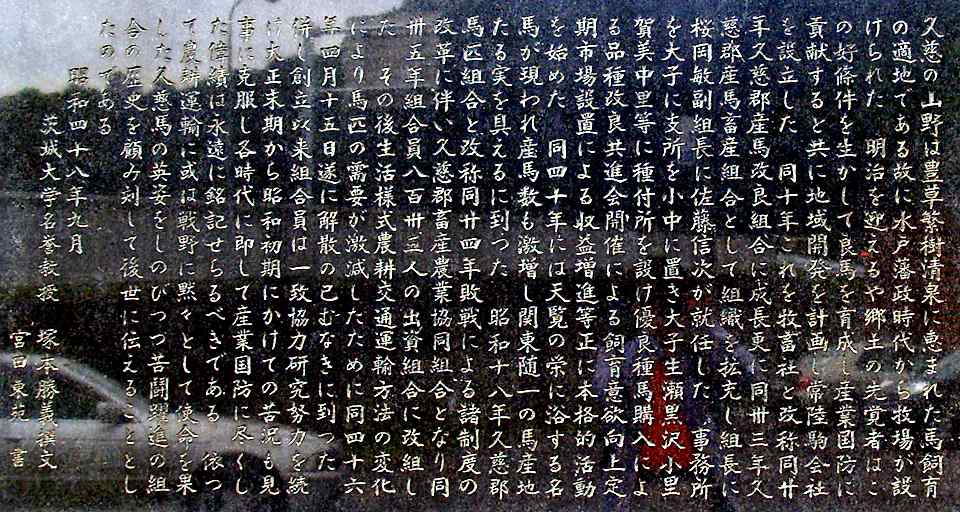 久慈の山野は豊草繁樹清泉に恵まれた馬飼育
の適地である故に水戸藩政時代から牧場が設
けられた　明治を迎えるや郷土の先覚者はこ
の好條件を生かして良馬を育成し産業国防に
貢献すると共に地域開発を計画し常陸駒会社
を設立した　同十年これを牧畜社と改称同廿
年久慈郡産馬改良組合に成長更に同卅三年久
慈郡産馬畜産組合として組織を拡充し組長に
桜岡敏副組長に佐藤信次が就任した　事務所
を大子に支所を小中に置き大子生瀬黒沢小里
賀美中里等に種付所を設け優良種馬購入によ
る品種改良共進会開催による飼育意欲向上定
期市場設置による収益増進等正に本格的活動
を始めた　同四十年には天覧の栄に浴する名
馬が現われ産馬数も激増し関東随一の馬産地
たる実を具えるに到った　昭和十八年久慈郡
馬匹組合と改称同廿四年敗戦による諸制度の
改革に伴い久慈郡畜産農業協同組合となり同
卅五年組合員八百卅三人の出資組合に改組し
た　その後生活様式農耕交通運輸方法の変化
により馬匹の需要が激減したために同四十六
年四月十五日遂に解散の已むなきに到った
併し創立以来組合員は一致協力研究努力を続
け大正末期から昭和初期にかけての苦況も見
事に克服し各時代に即して産業国防に尽くし
た偉績は永遠に銘記せらるべきである　依っ
て農耕運輸に或は戦野に黙々として使命を果
した久慈馬の英姿をしのびつつ苦闘躍進の組
合の歴史を顧み刻して後世に伝えることとし
たのである
昭和四十八年九月
茨城大学名誉教授　塚本勝義撰文
宮田東苑　書